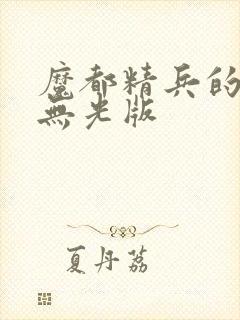 魔都精兵的
無光版
夏丹荔